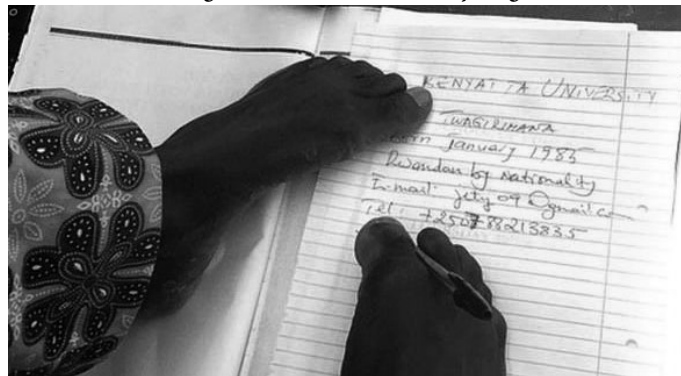 KENYATTA UNIVERSITY
TWAGIRIMANA
January 1985
Rwandan by nationality
E-mail:
Tel: +250788213835